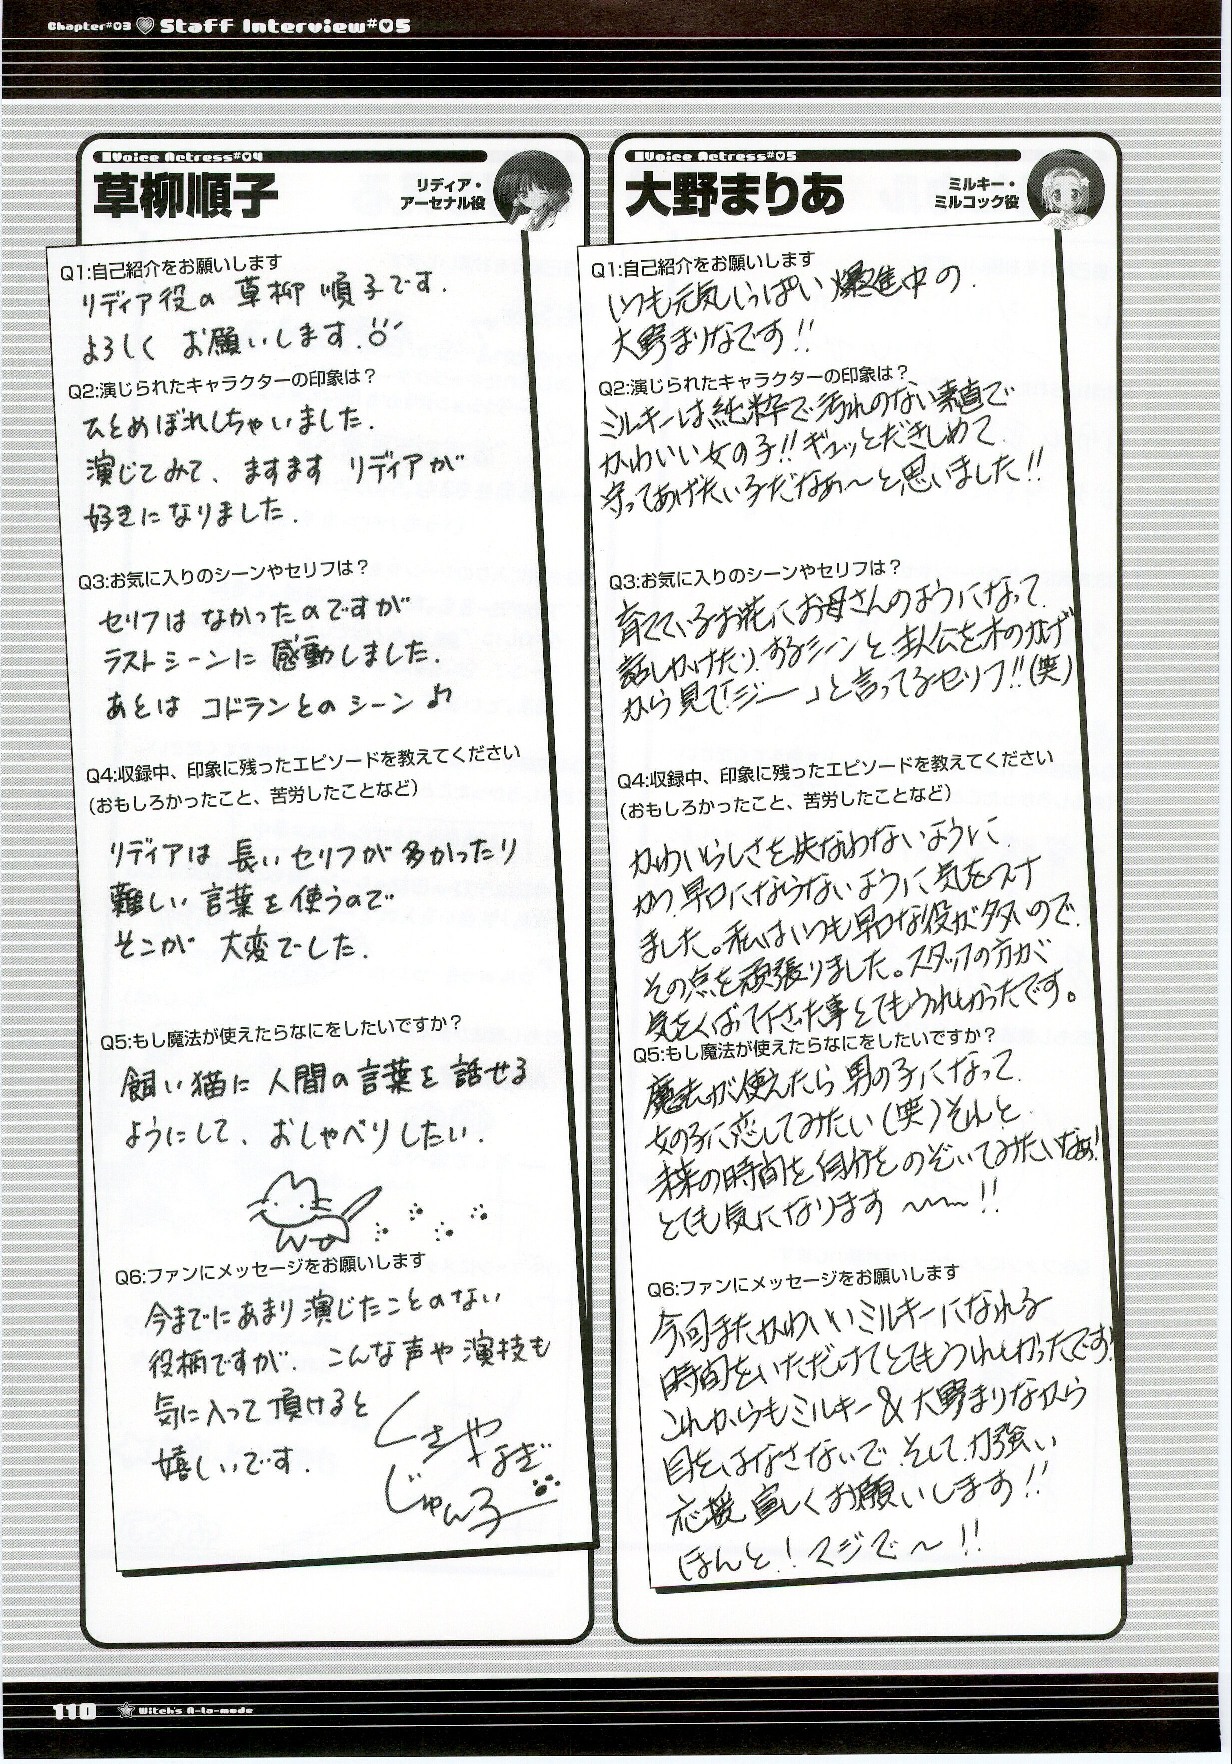 Chapter#03 Staff Interview#05
Voice Actress#04
草柳順子
リディア・
アーセナル役
Q1:自己紹介をお願いします
リディア役の 草柳 順子です.
よろしく お願いします.
Q2:演じられたキャラクターの印象は?
ひとめぼれしちゃいました.
演じてみて、ますます リディアが
好きになりました.
Q3:お気に入りのシーンやセリフは?
セリフは なかったのですが
ラストシーンに 感動しました.
あとは コドランとの シーン♪
Q4:収録中、印象に残ったエピソードを教えてください
(おもしろかったこと、苦労したことなど)
リディアは 長いセリフが 多かったり
難しい 言葉を 使うので
そこが 大変でした.
Q5:もし魔法が使えたらなにをしたいですか?
飼い猫に 人間の 言葉を 話せる
ようにして、おしゃべりしたい.
Q6:ファンにメッセージをお願いします
今までに あまり 演じたことのない
役柄ですが. こんな声や 演技も
気に入って 頂けると
嬉しいです.
くさやなぎ
じゅん子
Voice Actress#05
大野まりあ
ミルキー・
ミルコック役
Q1:自己紹介をお願いします
いつも元気いっぱい 爆進中の
大野まりなです!!
Q2:演じられたキャラクターの印象は?
ミルキーは純粋で汚れのない素直で
かわいい女の子!!ギュッとだきしめて
守ってあげたい子だなぁ〜と思いました!!
Q3:お気に入りのシーンやセリフは?
育てているお花にお母さんのようになって
話しかけたりするシーンと、主人公を木のかげ
から見て「ジー」と言ってるセリフ!!(笑)
Q4:収録中、印象に残ったエピソードを教えてください
(おもしろかったこと、苦労したことなど)
かわいらしさを失なわないように
かつ早口にならないように気をつけ
ました。私はいつも早口な役が多いので
その点を頑張りました。スタッフの方が
気をくばって下さった事とてもうれしかったです。
Q5:もし魔法が使えたらなにをしたいですか?
魔法が使えたら男の子になって
女の子に恋してみたい(笑)それと
未来の時間を自分をのぞいてみたいなぁ!
とても気になります〜〜!!
Q6:ファンにメッセージをお願いします
今回またかわいいミルキーになれる
時間をいただけてとてもうれしかったです!
これからもミルキー&大野まりなから
目をはなさないで そして力強い
応援 宜しくお願いします!!
ほんと!マジで〜!!
110 Witch's A-la-mode